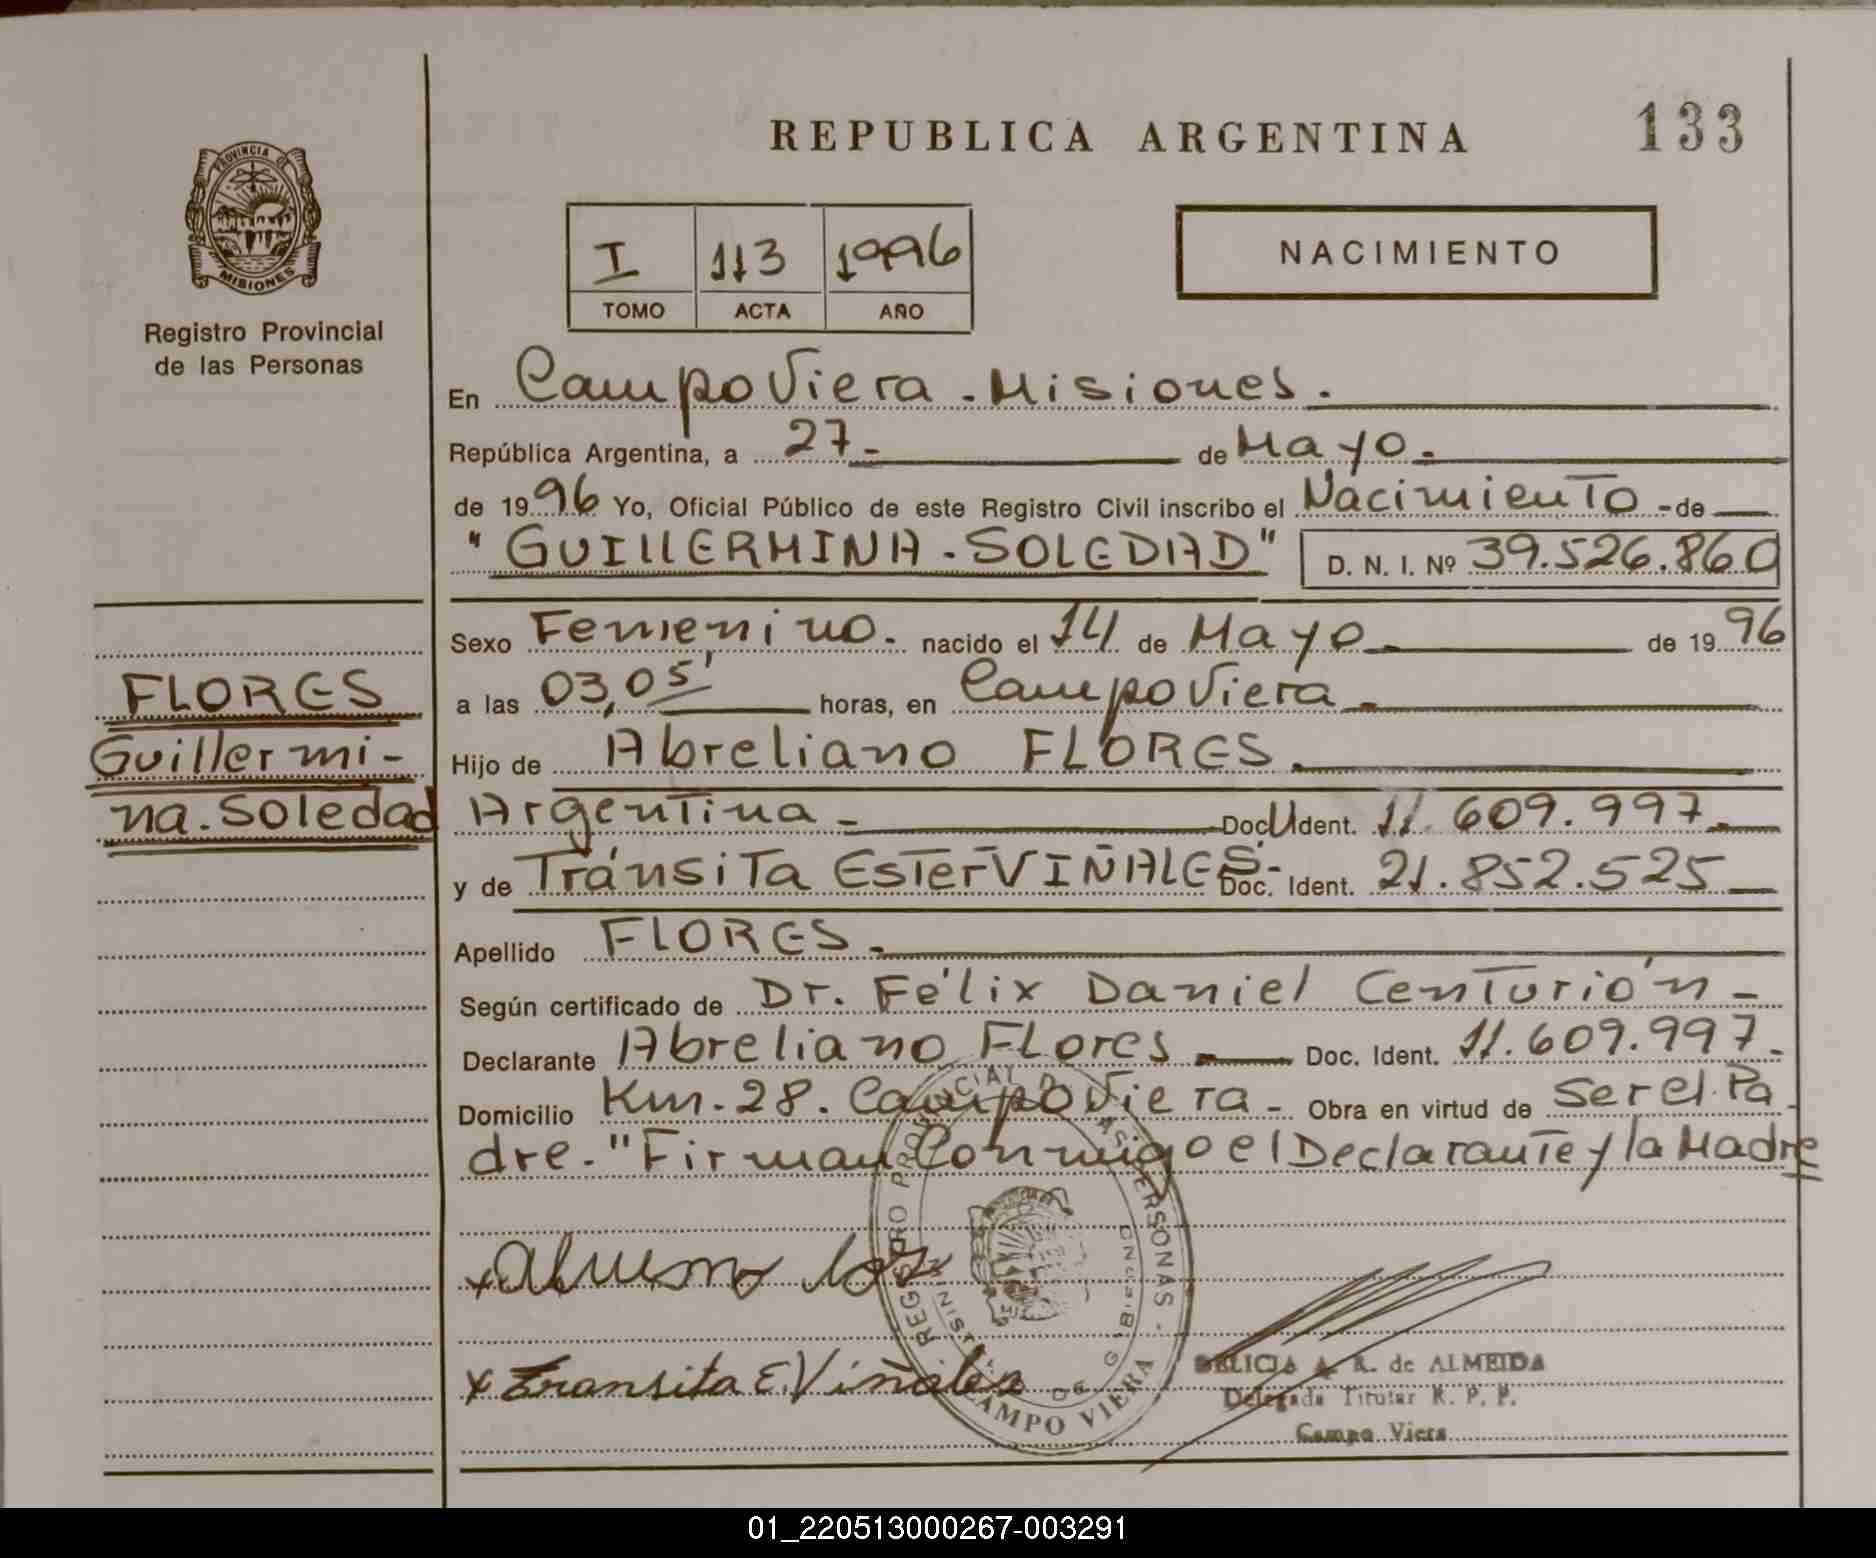 REPUBLICA ARGENTINA
133
PROVINCIA DE
MISIONES
Registro Provincial
de las Personas
I 113 1996
TOMO ACTA AÑO
NACIMIENTO
En Campo Viera - Misiones.
República Argentina, a 27- de Mayo.
de 1996 Yo, Oficial Público de este Registro Civil inscribo el Nacimiento - de
"GUILLERMINA - SOLEDAD" D. N. I. Nº 39.526.860
Sexo Femenino. nacido el 14 de Mayo de 1996
a las 03,05' horas, en Campo Viera
Hijo de Abreliano FLORES
Argentina - Doc U Ident. 11.609.997
y de Tránsita Ester VIÑALES.- Doc. Ident. 21.852.525
Apellido FLORES.
Según certificado de Dr. Félix Daniel Centurión -
Declarante Abreliano Flores Doc. Ident. 11.609.997.
Domicilio Km. 28. Campo Viera - Obra en virtud de Ser el Pa
dre. "Firman Conmigo el Declarante y la Madre
FLORES
Guillermi-
na. Soledad
x Transita E. Viñales
REGISTRO PROVINCIAL DE LAS PERSONAS -
CAMPO VIERA
DELICIA A. R. de ALMEIDA
Delegada Titular R. P. P.
Campo Viera
01_220513000267-003291